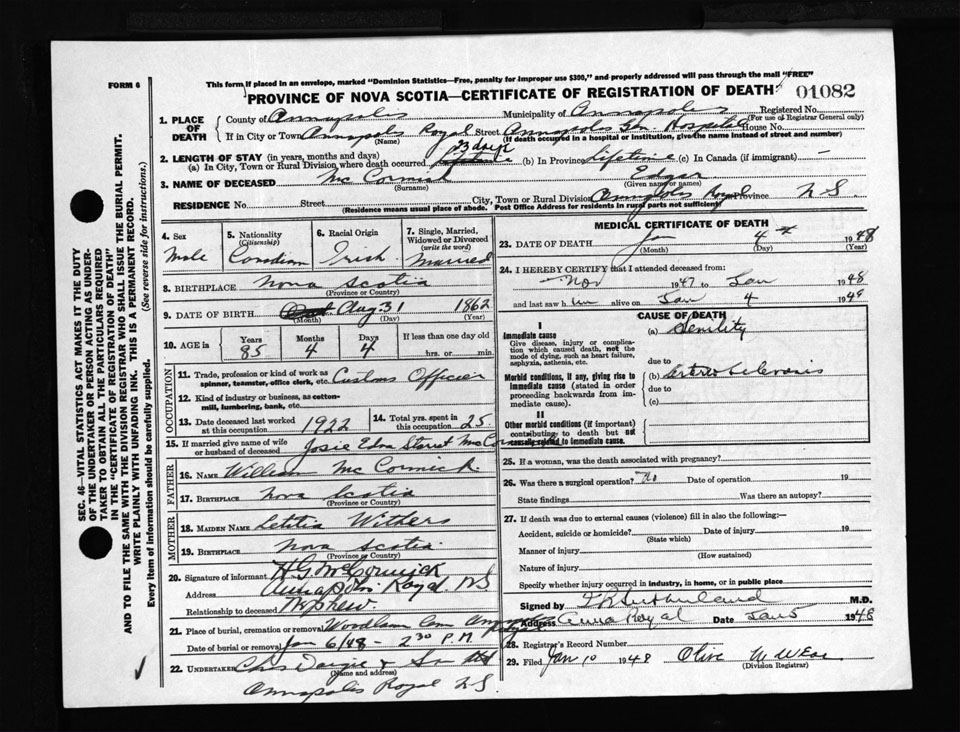 FORM 6
This form if placed in an envelope, marked "Dominion Statistics—Free, penalty for improper use $300," and properly addressed will pass through the mail "FREE"
PROVINCE OF NOVA SCOTIA—CERTIFICATE OF REGISTRATION OF DEATH
01082
SEC. 46—VITAL STATISTICS ACT MAKES IT THE DUTY
OF THE UNDERTAKER OR PERSON ACTING AS UNDER-
TAKER TO OBTAIN ALL THE PARTICULARS REQUIRED
IN THE "CERTIFICATE OF REGISTRATION OF DEATH"
AND TO FILE THE SAME WITH THE DIVISION REGISTRAR WHO SHALL ISSUE THE BURIAL PERMIT.
WRITE PLAINLY WITH UNFADING INK. THIS IS A PERMANENT RECORD.
Every item of information should be carefully supplied. (See reverse side for instructions.)
1. PLACE OF DEATH
County of Annapolis Municipality of Annapolis Registered No.
(For use of Registrar General only)
If in City or Town Annapolis Royal Street Annapolis Hospital House No.
(Name) (If death occurred in a hospital or institution, give the name instead of street and number)
2. LENGTH OF STAY (in years, months and days)
23 days
(a) In City, Town or Rural Division where death occurred (b) In Province lifetime (c) In Canada (if immigrant) —
3. NAME OF DECEASED McCormick Edgar
(Surname) (Given name or names)
RESIDENCE No. Street City, Town or Rural Division Annapolis Royal Province N S
(Residence means usual place of abode. Post Office Address for residents in rural parts not sufficient)
4. Sex
Male
5. Nationality
(Citizenship)
Canadian
6. Racial Origin
Irish
7. Single, Married, Widowed or Divorced
(write the word)
Married
8. BIRTHPLACE Nova Scotia
(Province or Country)
9. DATE OF BIRTH Aug. 31 1862
(Month) (Day) (Year)
10. AGE in
Years Months Days If less than one day old
85 4 4 hrs. or min.
OCCUPATION
11. Trade, profession or kind of work as
spinner, teamster, office clerk, etc. Customs Officer
12. Kind of industry or business, as cotton-
mill, lumbering, bank, etc.
13. Date deceased last worked at this occupation 1922
14. Total yrs. spent in this occupation 25.
15. If married give name of wife
or husband of deceased Josie Edna McCormick
FATHER
16. NAME William McCormick
17. BIRTHPLACE Nova Scotia
(Province or Country)
MOTHER
18. MAIDEN NAME Letitia Withers
19. BIRTHPLACE Nova Scotia
(Province or Country)
20. Signature of informant H G McCormick
Address Annapolis Royal, NS
Relationship to deceased Nephew.
21. Place of burial, cremation or removal Woodlawn Annapolis Royal
Date of burial or removal Jan 6/48 — 2 30 P.M
22. UNDERTAKER Chas Dargie & Son Ltd
(Name and address)
Annapolis Royal N S
MEDICAL CERTIFICATE OF DEATH
23. DATE OF DEATH Jan 4th 1948
(Month) (Day) (Year)
24. I HEREBY CERTIFY that I attended deceased from:
Nov 1947 to Jan 1948
and last saw him alive on Jan 4 1948
CAUSE OF DEATH
I
Immediate cause
Give disease, injury or complica-
tion which caused death, not the
mode of dying, such as heart failure,
asphyxia, asthenia, etc.
(a) Senility
due to
Morbid conditions, if any, giving rise to
immediate cause (stated in order
proceeding backwards from im-
mediate cause).
(b) Arterio Sclerosis
due to
(c)
II
Other morbid conditions (if important)
contributing to death but not
causally related to immediate cause.
25. If a woman, was the death associated with pregnancy?
26. Was there a surgical operation? No Date of operation 19
State findings Was there an autopsy?
27. If death was due to external causes (violence) fill in also the following:—
Accident, suicide or homicide? Date of injury 19
(State which)
Manner of injury
(How sustained)
Nature of injury
Specify whether injury occurred in industry, in home, or in public place
Signed by Sutherland M.D.
Address Anna Royal Date Jan 5 1948
28. Registrar's Record Number
29. Filed Jan 10 1948 Olive M
(Division Registrar)